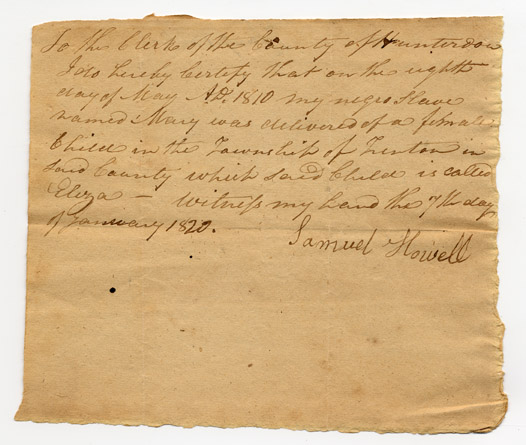 To the Clerk of the County of Hunterdon
I do hereby Certify that on the eighth
day of May AD, 1810 my negro Slave
named Mary was delivered of a female
Child in the Township of Trenton in
said County which said Child is called
Eliza — Witness my hand the 7th day
of January 1820.
Samuel Howell